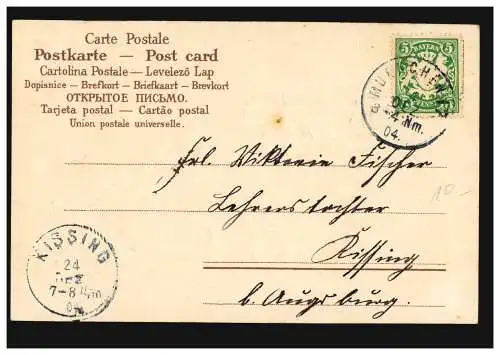 Carte Postale
Postkarte — Post card
Cartolina Postale — Levelező Lap
Dopisnice — Brefkort — Briefkaart — Brevkort
ОТКРЫТОЕ ПИСЬМО.
Tarjeta postal — Cartão postal
Union postale universelle.
5 BAYERN 5
MÜNCHEN
4-Nm.
04.
Frl. Viktorie Fischer
Lehrerstochter
Kissing
b. Augsburg.
KISSING
24
DEZ
7-8
04